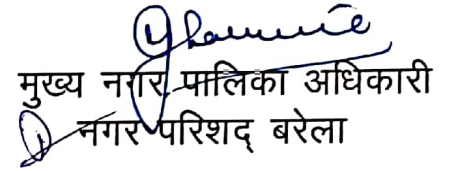 मुख्य नगर पालिका अधिकारी
नगर परिशद् बरेला